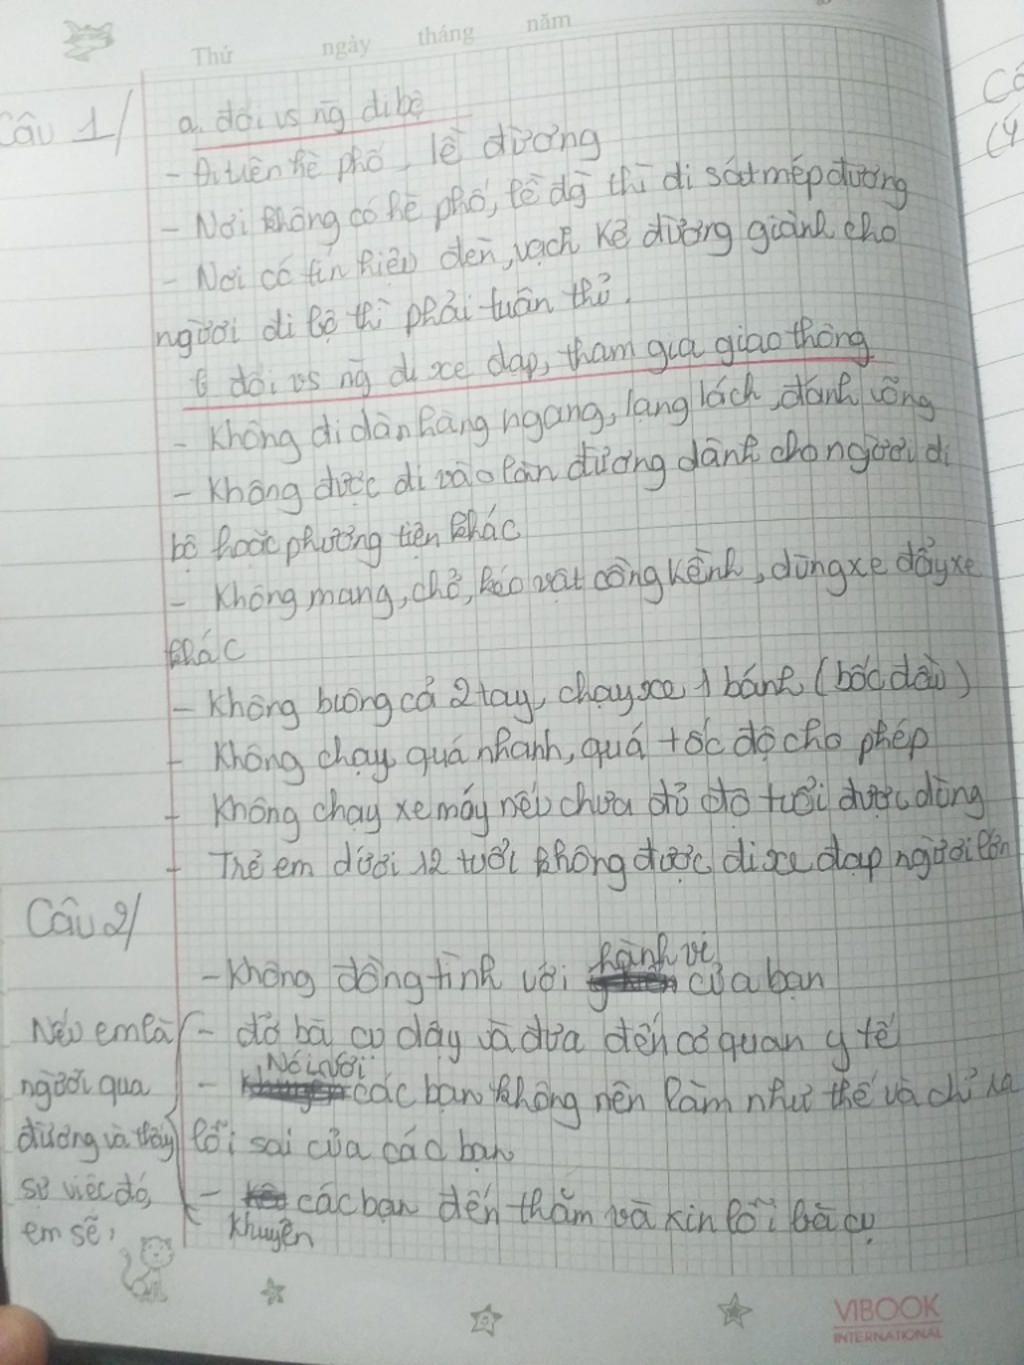 Thứ ngày tháng năm
Câu 1/
a. đối vs ng đi bộ
- Đi trên hè phố, lề đường
- Nơi không có hè phố, lề đg thì đi sát mép đường
- Nơi có tín hiệu đèn, vạch kẻ đường giành cho
người đi bộ thì phải tuân thủ.
b đối vs ng đi xe đạp, tham gia giao thông
- Không đi dàn hàng ngang, lạng lách, đánh võng
- Không được đi vào làn đường dành cho người đi
bộ hoặc phương tiện khác
- Không mang, chở, kéo vật cồng kềnh, dùng xe đẩy xe
khác
- Không buông cả 2 tay, chạy xe 1 bánh (bốc đầu)
- Không chạy quá nhanh, quá tốc độ cho phép
- Không chạy xe máy nếu chưa đủ độ tuổi được dùng
- Trẻ em dưới 12 tuổi không được đi xe đạp người lớn
Câu 2/
- Không đồng tình với hành vi của bạn
Nếu em là
người qua
đường và thấy
sự việc đó,
em sẽ:
- đỡ bà cụ dậy và đưa đến cơ quan y tế
- Nói với các bạn không nên làm như thế và chỉ ra
lỗi sai của các bạn
- Khuyên các bạn đến thăm và xin lỗi bà cụ
VIBOOK
INTERNATIONAL